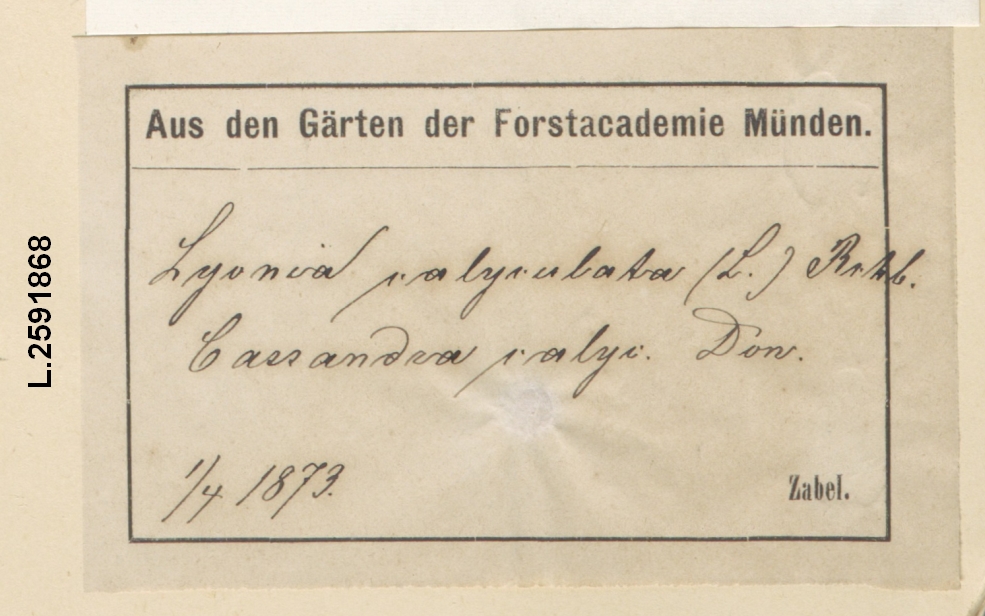 Aus den Gärten der Forstacademie Münden.
Lyonia calyculata (L.) Rchb.
Cassandra calyc. Don.
1/4 1873.
Zabel.
L.2591868